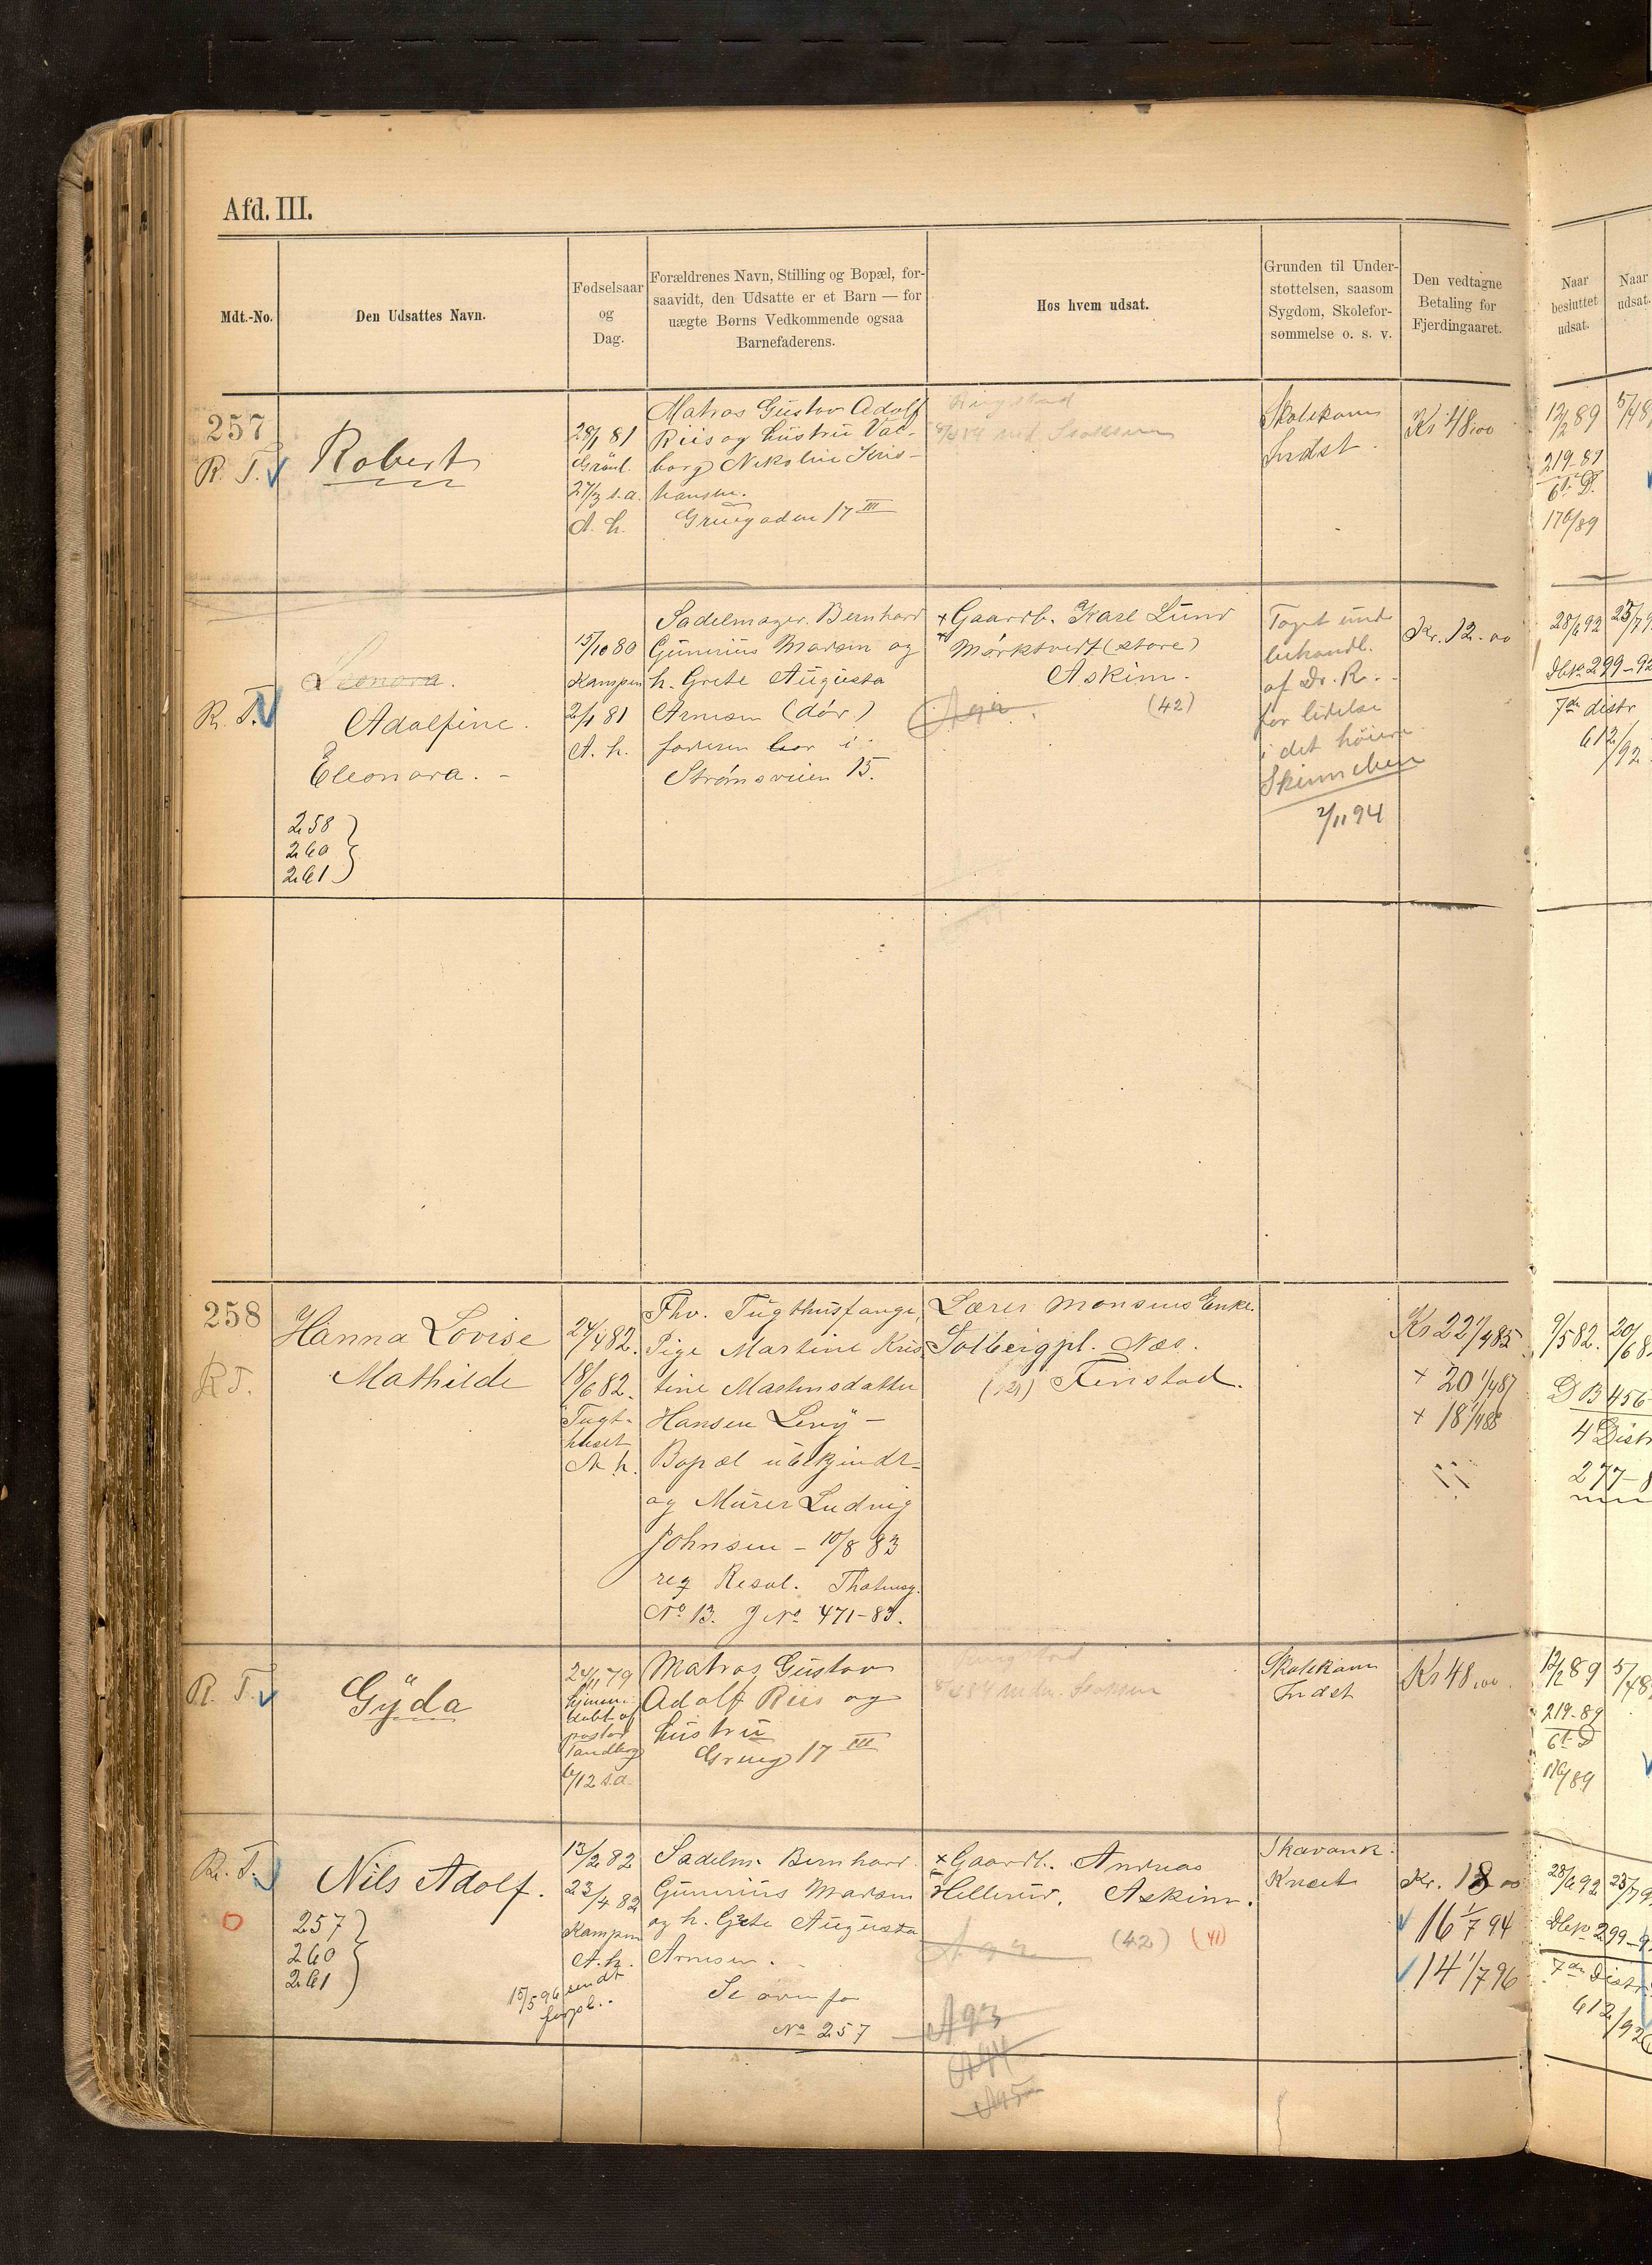 Afd. III.
Mdt.-No.
Den Udsattes Navn.
Fødselsaar
og
Dag.
Forældrenes Navn, Stilling og Bopæl, for-
saavidt, den Udsatte er et Barn — for
uægte Børns Vedkommende ogsaa
Barnefaderens.
Hos hvem udsat.
Grunden til Under-
støttelsen, saasom
Sygdom, Skolefor-
sømmelse o. s. v.
Den vedtagne
Betaling for
Fjerdingaaret.
Naar
besluttet
udsat.
Naar
udsat.
257
R. T.
Robert
28/1 81
Grønl.
27/3 s.a.
A. h.
Matros Gustav Adolf
Riis og hustru Val-
borg Nikoline Kris-
hansen.
Gruegaden 17 III
Skolekom
Indst.
Kr 48,00
12/2 89
219-89
6te D.
176/89
R. T.
Leonora.
Adolfine.
Eleonora. -
258
260
261
15/10 80
Kampen
2/1 81
A. h.
Sadelmager. Bernhard
Gunerius Madsen og
h. Grete Augusta
Arnesen (død)
faderen bor i
Strømsveien 15.
+ Gaardb. Karl Lund
Mørktvedt (store)
Askim.
(42)
Taget under
behandl.
af Dr. R.
for lidelse
i det høire
Skinneben
2/11 94
Kr. 12.00
28/6 92
299-92
7de distr
612/92
258
R T.
Hanna Lovise
Mathilde
24/4 82.
18/6 82.
Tugt-
huset
A h.
Fhv. Tugthusfange,
Pige Martine Kris
tine Mastensdatter
Hansen Levy -
Bopæl ubekjendt -
og Murer Ludvig
Johnsen - 10/8 83
reg Resol. Tholvesg.
No 13. J No 471-83.
Lærer Monsens Enke.
Solbergpl. Næs.
Fenstad.
Kr 22 1/4 85
+ 20 1/4 87
+ 18 1/4 88
9/5 82.
DB 456
4 Distr
277-8
R. T.
Gyda
24/11 79
hjemme-
døbt af
pastor
Tandberg
6/12 s.a.
Matros Gustav
Adolf Riis og
hustru
Grueg 17 III
Skolekom
Indst
Kr 48,00
12/2 89
219-89
6te D
176/89
R. T.
Nils Adolf.
257
260
261
13/2 82
23/4 82
Kampen
A. h.
15/5 96 sendt
forpl..
Sadelm. Bernhard
Gunerius Madsen
og h. Grete Augusta
Arnesen.
Se ovenfor
No 257
+ Gaardb. Andreas
Hellerud, Askim.
(42) (41)
A 93
A 94
A 95
Skavank.
Knæet
Kr. 18 00
16 1/7 94
14 1/7 96
28/6 92
299-9
7de Distr
612/92